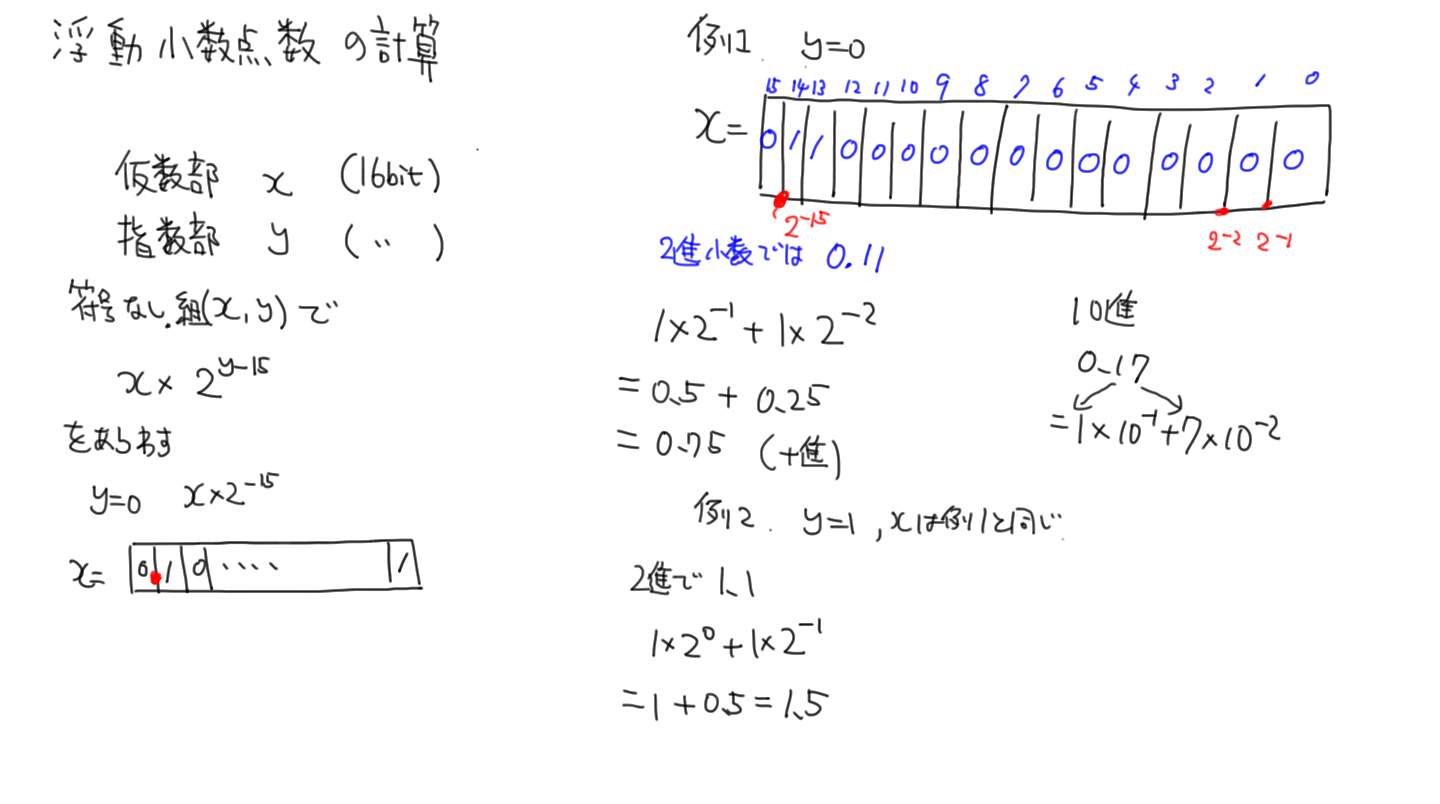 浮動小数点数の計算
仮数部 x (16bit)
指数部 y (〃)
符号なし.組(x,y)で
x×2^{y-15}
をあらわす
y=0 x×2^{-15}
x= 0 1 0 ‥‥ 1
例1. y=0
15 14 13 12 11 10 9 8 7 6 5 4 3 2 1 0
x= 0 1 1 0 0 0 0 0 0 0 0 0 0 0 0 0
2^{-15} 2^{-2} 2^{-1}
2進小数では 0.11
1×2^{-1}+1×2^{-2}
=0.5+0.25
=0.75 (十進)
10進
0.17
=1×10^{-1}+7×10^{-2}
例2. y=1, xは例1と同じ
2進で 1.1
1×2^0+1×2^{-1}
=1+0.5=1.5